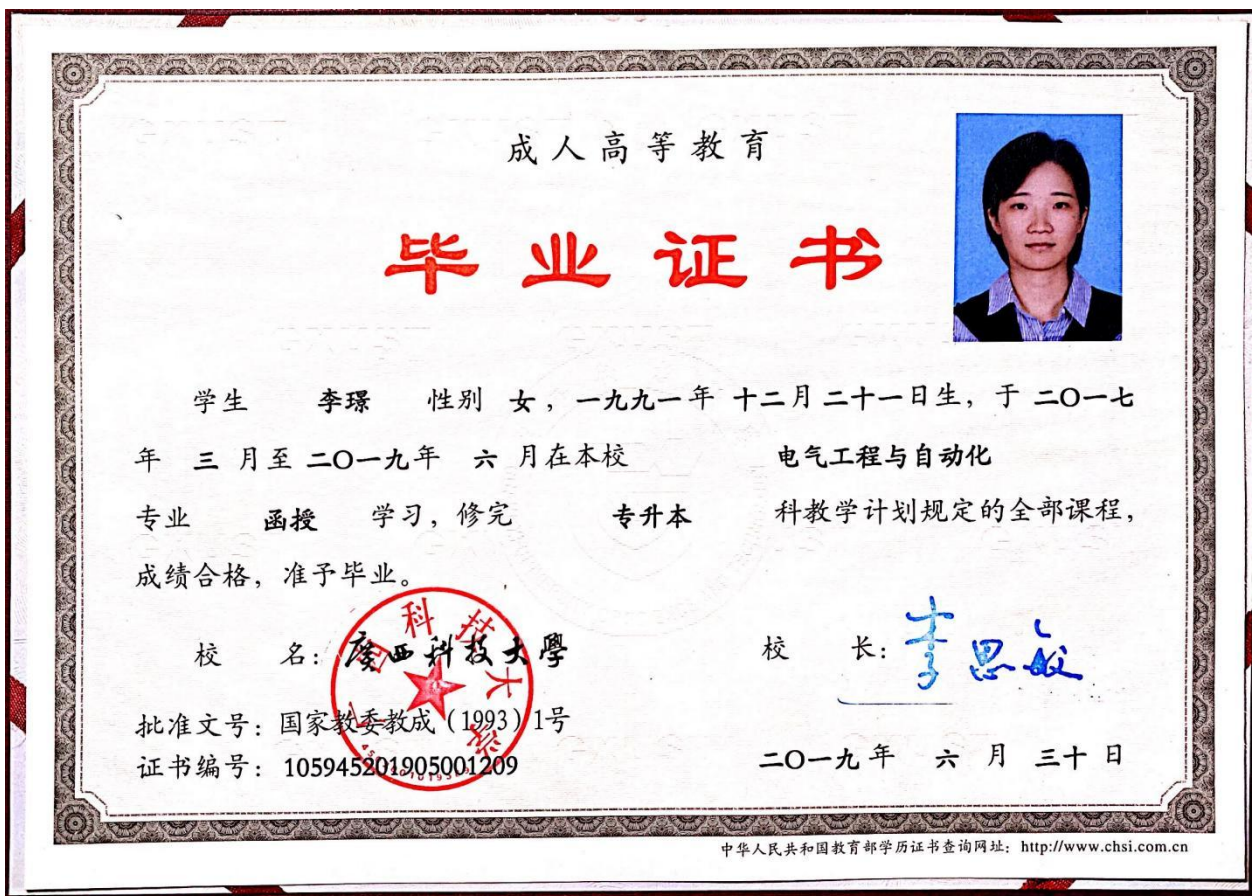 成人高等教育
毕业证书
学生 李璟 性别 女，一九九一年 十二月 二十一日生，于 二〇一七
年 三 月至 二〇一九年 六 月在本校 电气工程与自动化
专业 函授 学习，修完 专升本 科教学计划规定的全部课程，
成绩合格，准予毕业。
校 名：廣西科技大學 校 长：李思敏
批准文号：国家教委教成（1993）1号
证书编号：105945201905001209 二〇一九年 六 月 三十 日
中华人民共和国教育部学历证书查询网址：http://www.chsi.com.cn